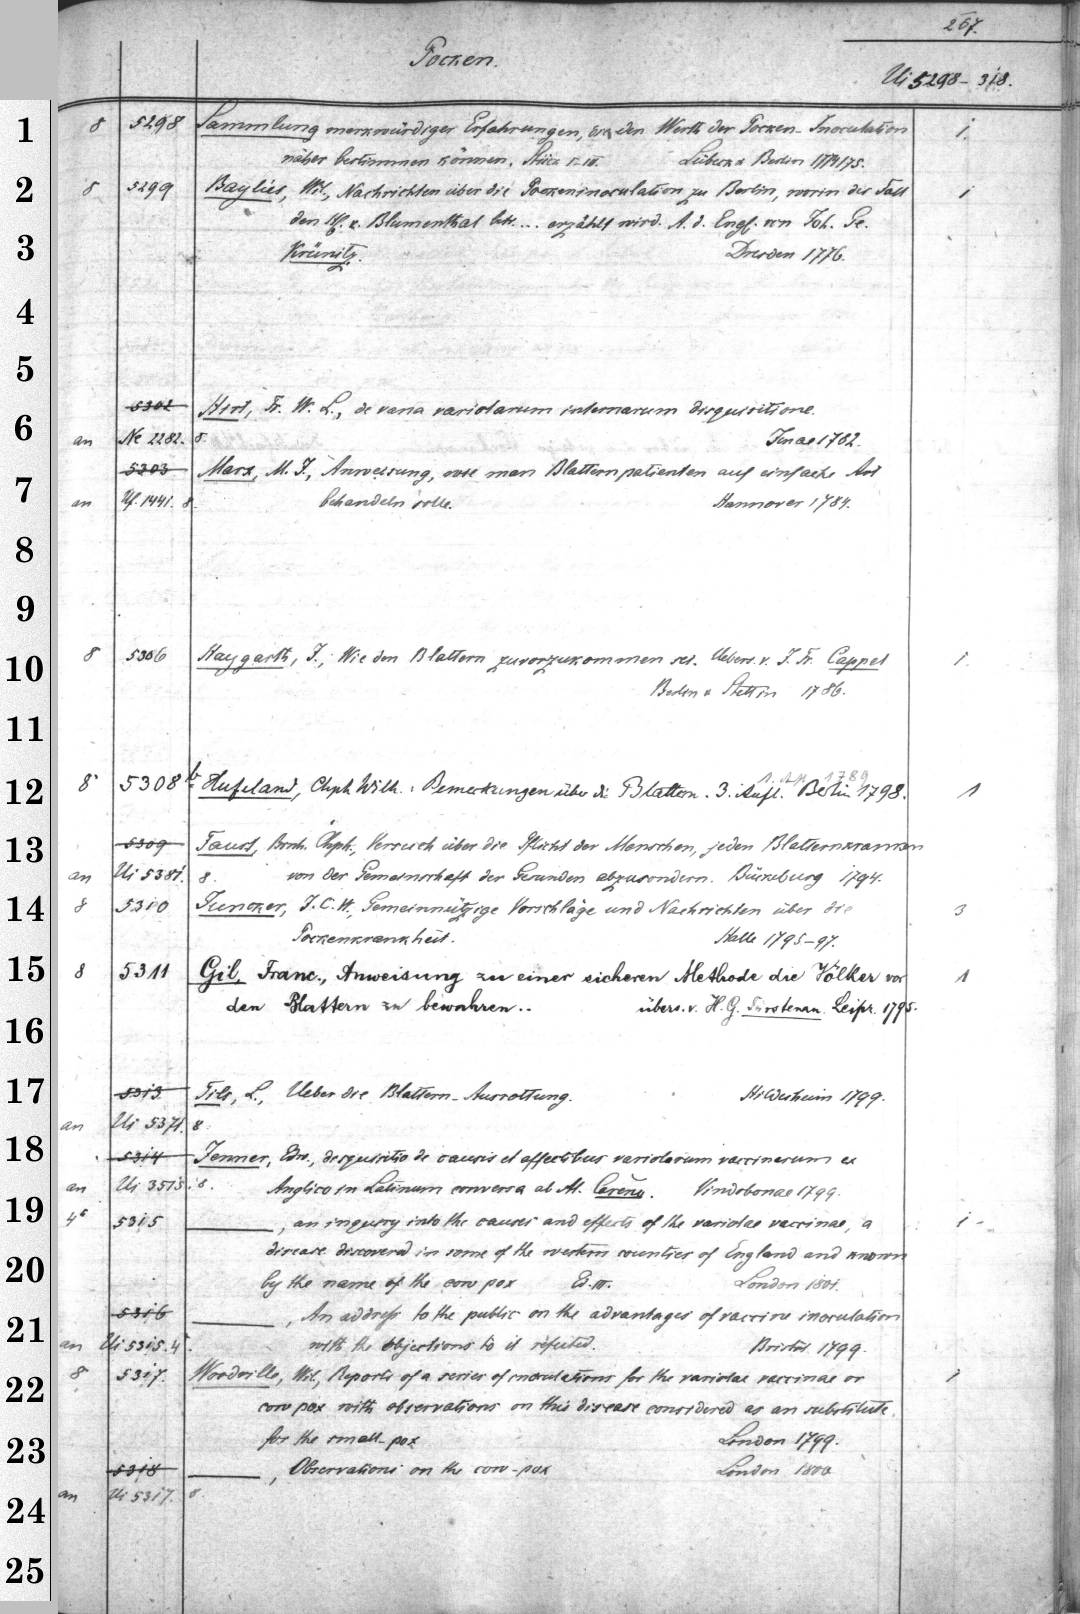 267.
Pocken.
Ui 5298-318.
1 8 5298 Sammlung merkwürdiger Erfahrungen, den Werth der Pocken-Inoculation i
näher bestimmen können. Stück I-III. Lübeck u Berlin 1774/75.
2 8 5299 Baylies, Wil., Nachrichten über die Pockeninoculation zu Berlin, worin der Fall i
den v. Blumenthal betr... erzählt wird. A. d. Engl. von Joh. Ge.
3 Krünitz. Dresden 1776.
4
5
5302 Hirt, Fr. W. L., de varia variolarum internarum disquisitione.
6 an Ne 2282. 8. Jenae 1782.
5303 Marx, M. J., Anweisung, wie man Blatternpatienten auf einfache Art
7 an Uf. 1441. 8. behandeln solle. Hannover 1784.
8
9
10 8 5306 Haygarth, J., Wie den Blattern zuvorzukommen sei. Uebers. v. J. Fr. Cappel i
Berlin u Stettin 1786.
11
1789
12 8° 5308b Hufeland, Chph Wilh. : Bemerkungen über die Blattern. 3. Aufl. Berlin 1798. 1
13 5309 Faust, Bernh. Chph., Versuch über die Pflicht der Menschen, jeden Blatternkranken
an Ui 5381. 8. von der Gemeinschaft der Gesunden abzusondern. Bückeburg 1794.
14 8 5310 Juncker, J. C. W., Gemeinnützige Vorschläge und Nachrichten über die 3
Pockenkrankheit. Halle 1795-97.
15 8 5311 Gil, Franc., Anweisung zu einer sicheren Methode die Völker vor 1
den Blattern zu bewahren.. übers. v. H. G. Fürstenau. Leipz. 1795.
16
17 5313 Tils, L., Ueber die Blattern-Ausrottung. Hildesheim 1799.
an Ui 5371. 8.
18 5314 Jenner, Edw., disquisitio de causis et effectibus variolarum vaccinarum ex
an Ui 3515. 8. Anglico in Latinum conversa ab Al. Careno. Vindobonae 1799.
19 4° 5315 ———, an inquiry into the causes and effects of the variolae vaccinae, a i
disease discovered in some of the western counties of England and known
20 by the name of the cow pox Ed. III. London 1801.
5316 ———, An address to the public on the advantages of vaccine inoculation
21 an Ui 5315. 4°. with the objections to it refuted. Bristol 1799.
22 8 5317. Woodville, Wil., Reports of a series of inoculations for the variolae vaccinae or i
cow pox with observations on this disease considered as an substitute
23 for the small-pox London 1799.
5318 ———, Observations on the cow-pox London 1800
24 an Ui 5317. 8.
25